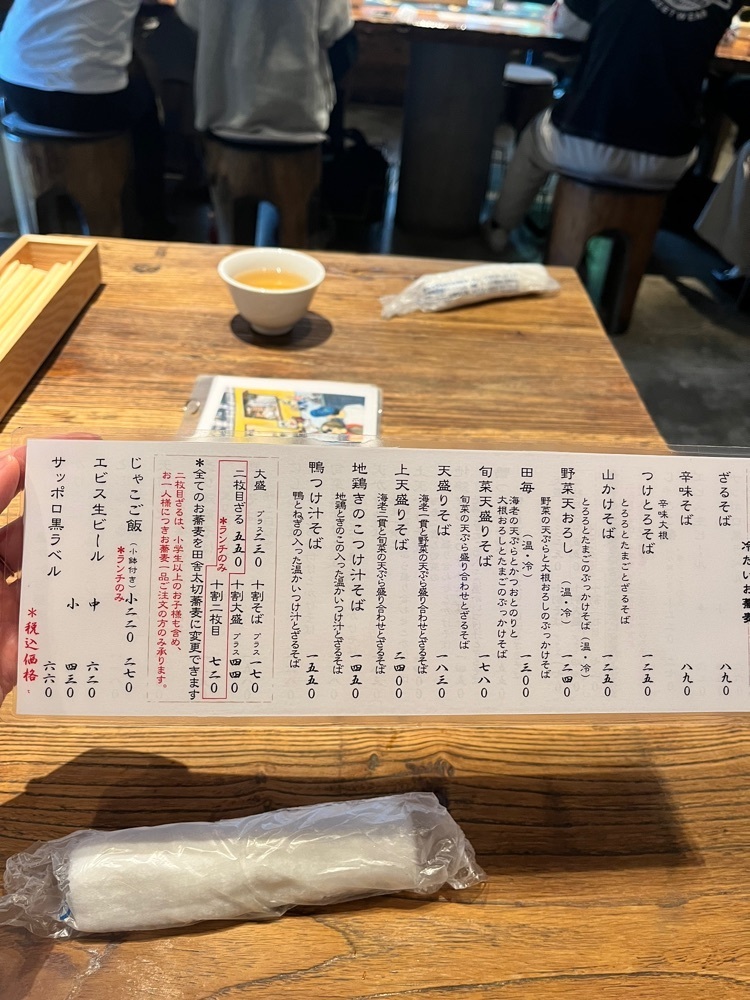 冷たいお蕎麦
ざるそば 八九〇
辛味そば 八九〇
辛味大根
つけとろそば 一二五〇
とろろとたまごとざるそば
山かけそば 一二五〇
とろろとたまごのぶっかけそば(温・冷)
野菜天おろし(温・冷) 一二四〇
野菜の天ぷらと大根おろしのぶっかけそば
田毎(温・冷) 一三〇〇
海老の天ぷらとかつおとのりと
大根おろしとたまごのぶっかけそば
旬菜天盛りそば 一七八〇
旬菜の天ぷら盛り合わせとざるそば
天盛りそば 一八三〇
海老一貫と野菜の天ぷら盛り合わせとざるそば
上天盛りそば 二四〇〇
海老二貫と旬菜の天ぷら盛り合わせとざるそば
地鶏きのこつけ汁そば 一四五〇
地鶏ときのこの入った温かいつけ汁とざるそば
鴨つけ汁そば 一五五〇
鴨とねぎの入った温かいつけ汁とざるそば
大盛 プラス二三〇 十割そば プラス一七〇
二枚目ざる 五五〇 十割大盛 プラス四四〇
*ランチのみ 十割二枚目 七二〇
*全てのお蕎麦を田舎太切蕎麦に変更できます
二枚目ざるは、小学生以上のお子様も含め、
お一人様につきお蕎麦一品ご注文の方のみ承ります。
じゃこご飯(小鉢付き) 小二二〇 二七〇
*ランチのみ
エビス生ビール 中 六二〇
小 四三〇
サッポロ黒ラベル 六六〇
*税込価格